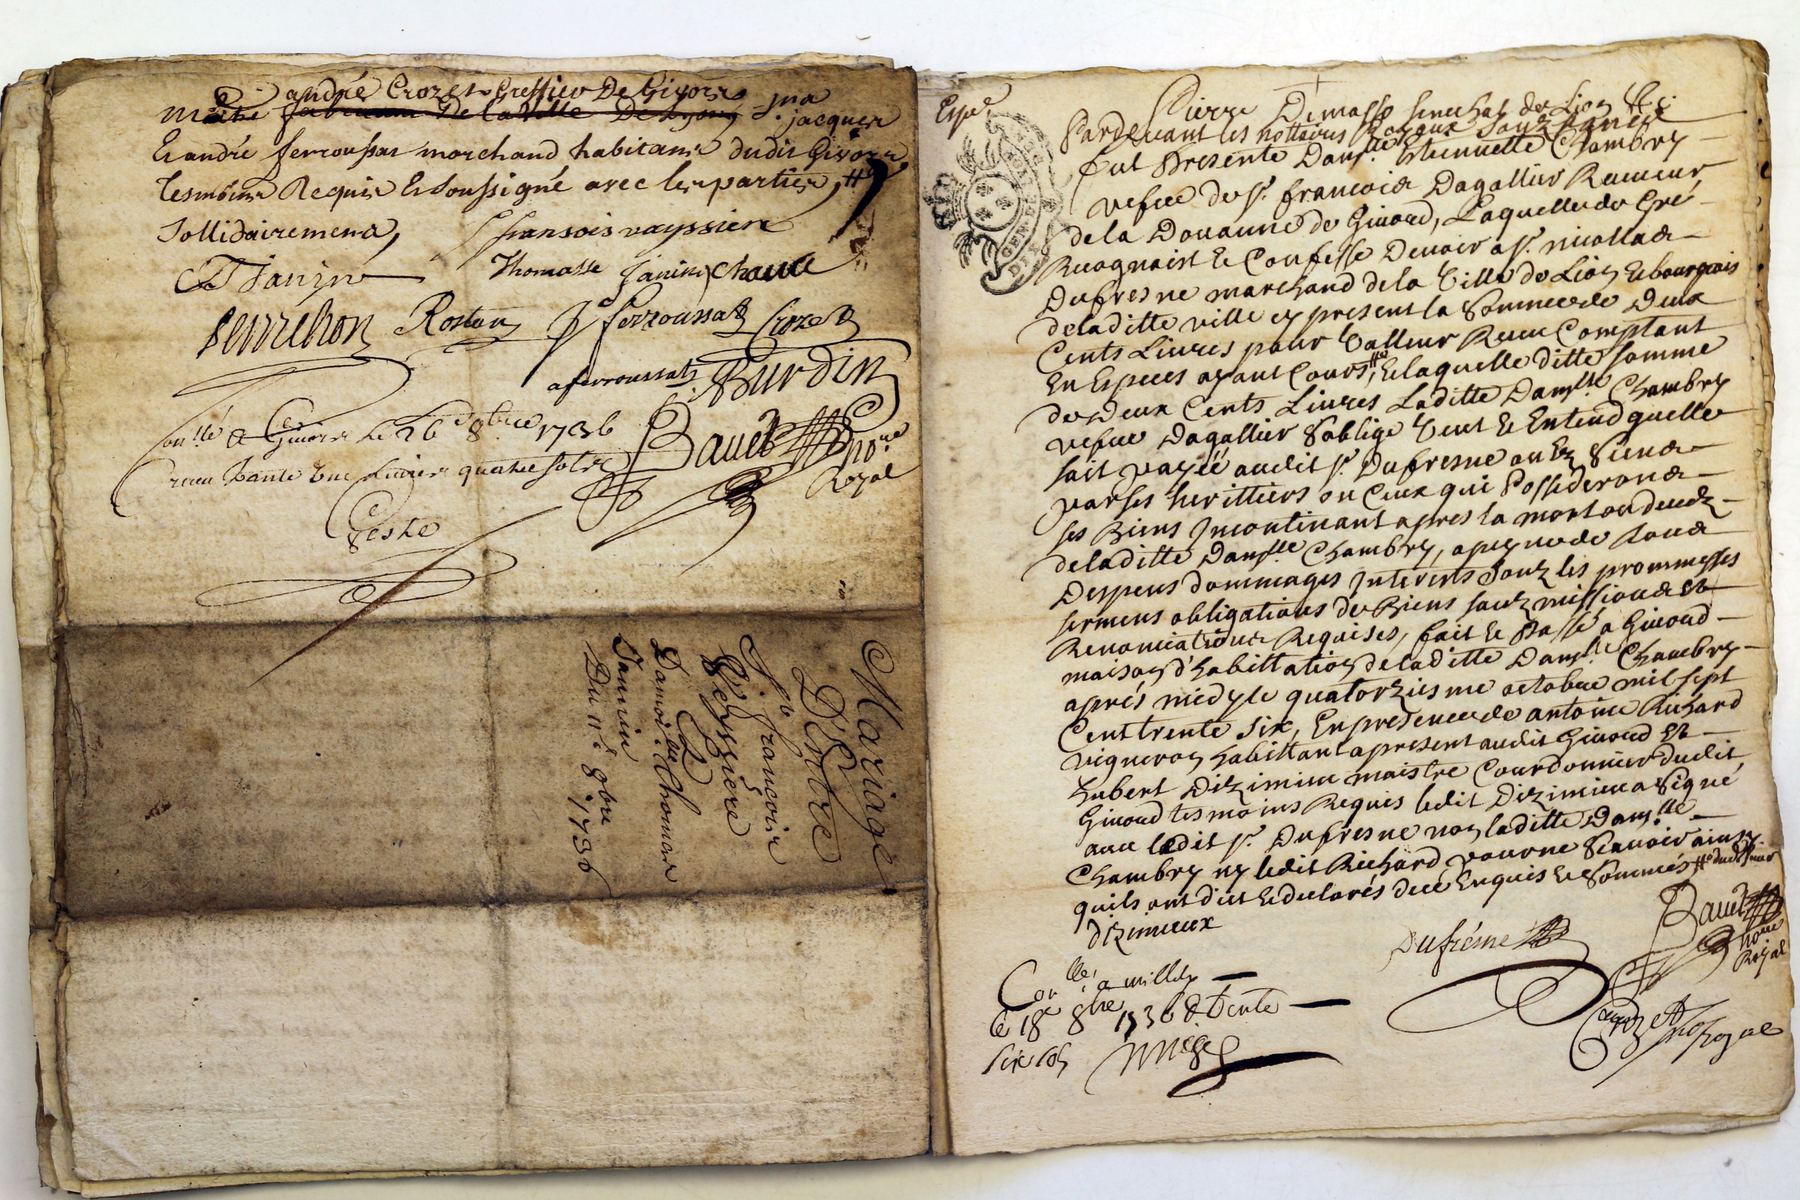 andré Crozet Greffier De Givors
Me fabricien De la Ville De Lyon Sr. jacques
Et andré ferroussat marchand habitans dudit Givors
tesmoins Requis Et soussigné avec les parties
Sollidairement
fransois vayssiere
Janin
Thomasse Janin Chauve
perrichon Rostan J ferroussat Crozet
aferroussat Burdin
Conllé a Givors Le 26e 8bre 1736
Receu trante une Livres quatre sols
Bauet nore
Royal
Geste
Mariage
D'Entre
Sr. francois
Veyssière
Et
Damlle Thomase
Jannin
Du 11e 8bre
1736
Expé
Pierre Demasso senechal de Lion &c
Pardevant les nottaires Royaux souzsignés
fut presente Damlle Estiennette Chambry
vefue de Sr. francois Dagallier Receueur
de la Douanne de Giuord, Laquelle de Gré
Recognoist et Confesse Deuoir a Sr. nicollas
Dufresne marchand de la Ville de Lion et bourgeois
de laditte ville cy present la Somme de Deux
Cents Liures pour Valleur Receu Comptant
En Especes ayant Cours, Et laquelle ditte somme
de Deux Cents Liures Laditte Damlle Chambry
vefue Dagallier s'oblige Veut et Entend quelle
soit payée audit Sr. Dufresne ou Es Siens
par ses herittiers ou Ceux qui Possederons
ses Biens Incontinant apres la mort ou deceds
de laditte Damlle Chambry, a peyne de tous
Despens dommages Interests souz les prommesses
sermens obligations de Biens souzmissions et
Renonciations Requises, fait et Passé a Giuord
maison d'habittation de laditte Damlle Chambry
aprés midy le quatorziesme octobre mil sept
Cent trente six, En presence de antoine Richard
vigneron habittant a present audit Giuord et
hubert Dizimieu maistre Courdonnier dudit
Giuord tesmoins Requis ledit Dizimieu a Signé
auec ledit Sr. Dufresne non laditte Damlle
Chambry ny ledit Richard pour ne Scauoir ainsy
quils ont dit et declarés de ce Enquis et Sommés
dizimieux
Dufréne
Bauet
nore
Royal
Conllé a millery
le 18e 8bre 1736 R trente
six sols
Crozet
no Royal